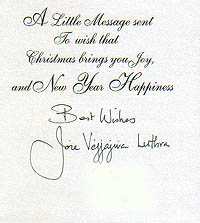 A Little Message sent
To wish that
Christmas brings you Joy,
and New Year Happiness
Best Wishes
Jose Vejjajiva Luthra